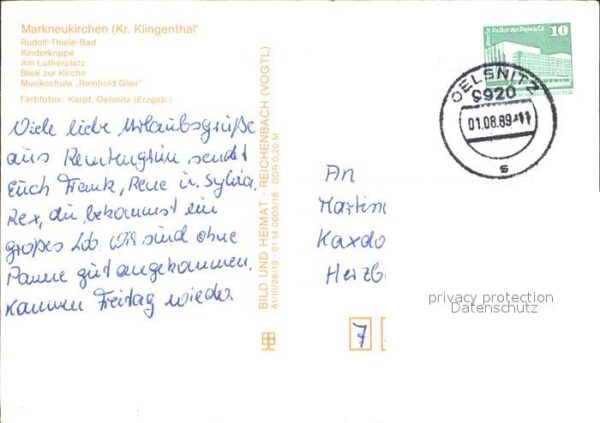 Markneukirchen (Kr. Klingenthal)
Rudolf-Thiele-Bad
Kinderkrippe
Am Lutherplatz
Blick zur Kirche
Musikschule „Reinhold Glier"
Farbfotos: Karpf, Oelsnitz (Erzgeb.)
Viele liebe Urlaubsgrüße
aus sendet
Euch Frank, Rene u. Sylvia
Rex, du bekommst ein
großes Lob Wir sind ohne
Panne gut angekommen.
Kommen Freitag wieder
BILD UND HEIMAT · REICHENBACH (VOGTL)
A1/III/26/13 · 01 14 0603/16 DDR 0,20 M
Berlin, Palast der Republik
10
DDR
OELSNITZ
9920
01.08.89-11
s
An
Martin
Kaxdo
Herzb
7
privacy protection
Datenschutz